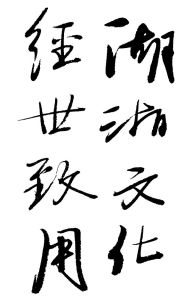 湖湘文化
經世致用